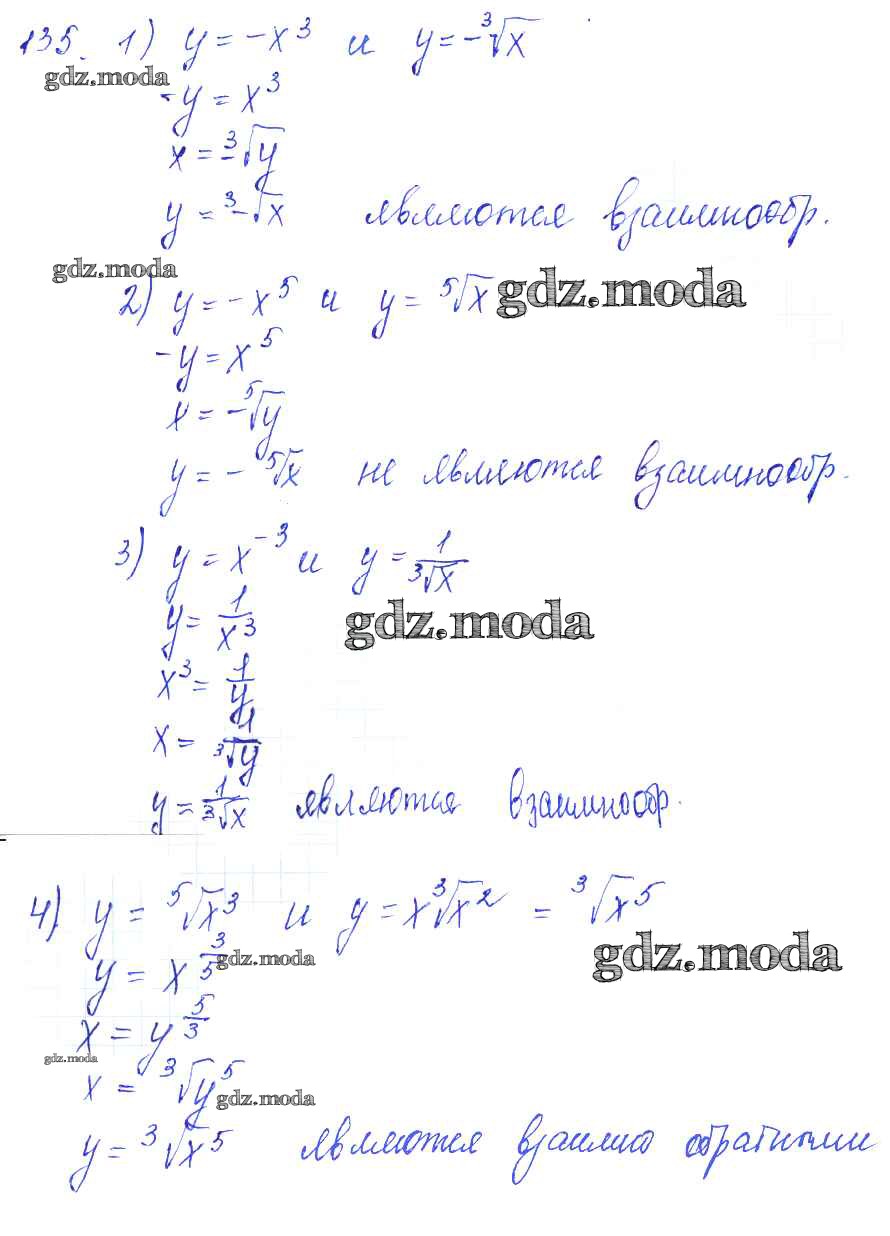 135. 1) y = -x³ и y = -∛x
gdz.moda
-y = x³
x = ∛-y
y = ∛-x являются взаимнообр.
gdz.moda
2) y = -x⁵ и y = ⁵√x gdz.moda
-y = x⁵
x = -⁵√y
y = - ⁵√x не являются взаимнообр.
3) y = x⁻³ и y = 1/∛x
y = 1/x³ gdz.moda
x³ = 1/y
x = 1/∛y
y = 1/∛x являются взаимнообр.
4) y = ⁵√x³ и y = x∛x² = ∛x⁵
y = x^(3/5) gdz.moda gdz.moda
x = y^(5/3)
gdz.moda
x = ∛y⁵ gdz.moda
y = ∛x⁵ являются взаимно обратными